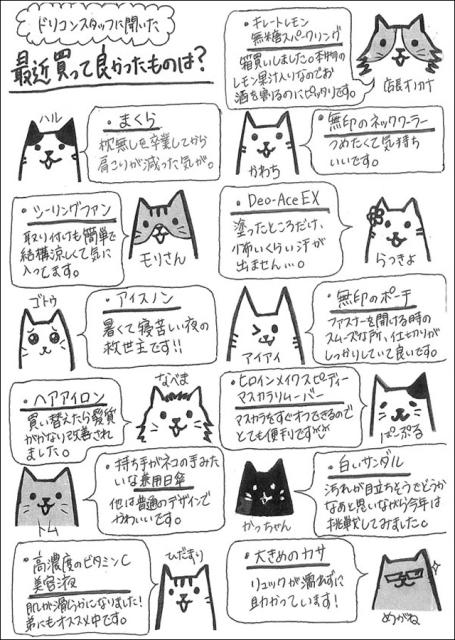 ドリコンスタッフに聞いた
最近買って良かったものは?
・キレートレモン
無糖スパークリング
箱買いしました。本物の
レモン果汁入りなのでお
酒を割るのにピッタリです。
店長オカナ
ハル
・まくら
枕無しを卒業してから
肩こりが減った気が。
・無印のネッククーラー
つめたくて気持ち
いいです。
かわち
・シーリングファン
取り付けも簡単で
結構涼しくて気に
入ってます。
モリさん
・Deo-Ace EX
塗ったところだけ、
怖いくらい汗が
出ません…。
らっきょ
ゴトウ
・アイスノン
暑くて寝苦しい夜の
救世主です!!
・無印のポーチ
ファスナーを開ける時の
スムーズな所、仕切りが
しっかりしていて良いです。
アイアイ
・ヘアアイロン
買い替えたら髪質
がかなり改善され
ました。
なべま
・ヒロインメイクスピーディー
マスカラリムーバー
マスカラをすぐオフできるので
とても便利です
ぱーぷる
・持ち手がネコの手みた
いな兼用日傘
他は普通のデザインで
かわいいです。
トム
・白いサンダル
汚れが目立ちそうでどうか
なあと思いながら今年は
挑戦してみました。
かっちゃん
・高濃度のビタミンC
美容液
肌が滑らかになりました!
弟にもオススメ中です。
ひだまり
・大きめのカサ
リュックが濡れずに
助かっています!
めがね